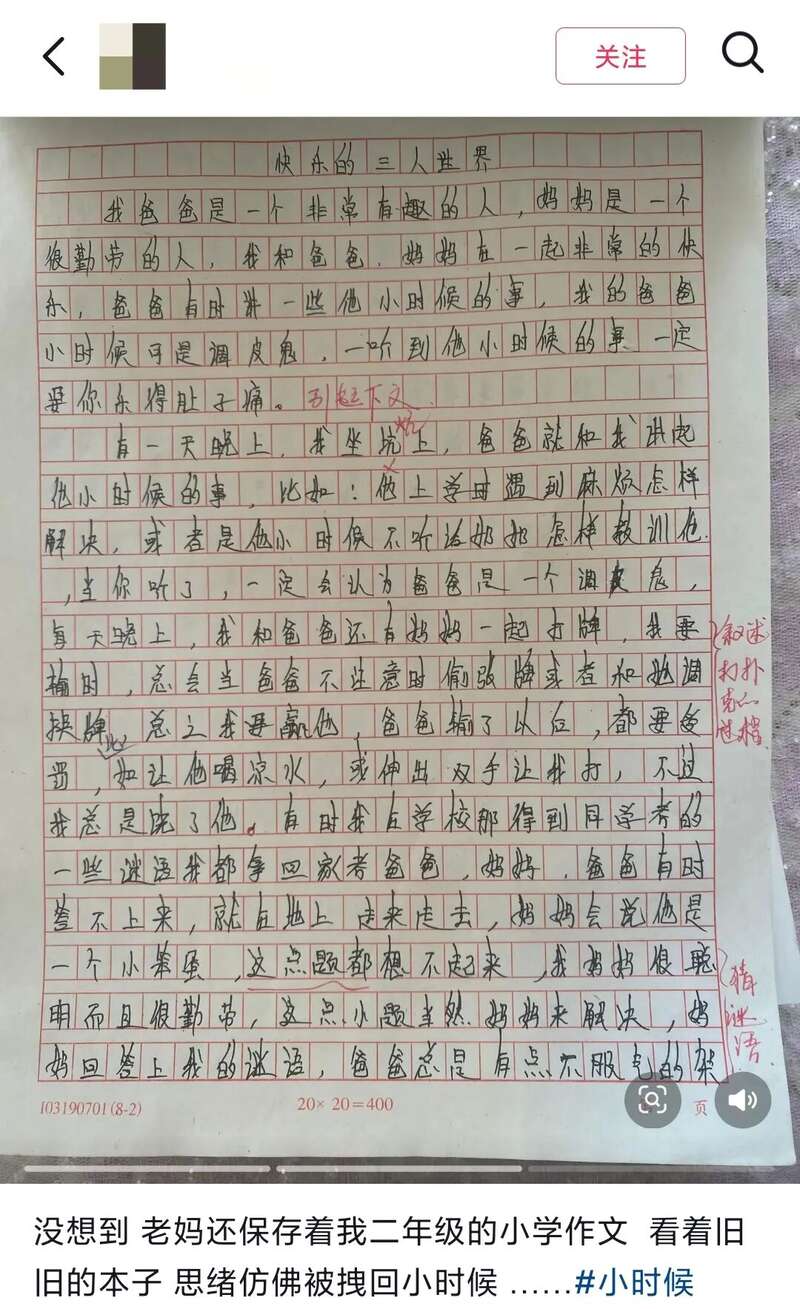 关注
快乐的三人世界
我爸爸是一个非常有趣的人，妈妈是一个
很勤劳的人，我和爸爸．妈妈在一起非常的快
乐，爸爸有时讲一些他小时候的事，我的爸爸
小时候可是调皮鬼，一听到他小时候的事一定
要你乐得肚子痛。引起下文
炕
有一天晚上，我坐坑上，爸爸就和我讲起
他小时候的事，比如：他上学时遇到麻烦怎样
解决，或者是他小时候不听话奶奶怎样教训他
，当你听了，一定会认为爸爸是一个调皮鬼，
每天晚上，我和爸爸还有妈妈一起打牌，我要
输时，总会当爸爸不注意时偷张牌或者和妈调
换牌，总之我要赢他，爸爸输了以后，都要受
罚，如让他喝凉水，或伸出双手让我打，不过
我总是饶了他。有时我在学校那得到同学考的
一些谜语我都拿回家考爸爸，妈妈．爸爸有时
答不上来，就在地上走来走去，妈妈会说他是
一个小笨蛋，这点题都想不起来，我妈妈很聪
明而且很勤劳，这点小题当然妈妈来解决，妈
妈回答上我的谜语，爸爸总是有点不服气的架
叙述
打扑
克的
过程
猜
谜
语
103190701(8-2)
20×20=400
页
没想到 老妈还保存着我二年级的小学作文 看着旧
旧的本子 思绪仿佛被拽回小时候 ……#小时候